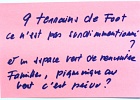 9 terrains de Foot
ce n'est pas conditionnentionnel
?
et un espace vert de rencontre
Familles, pique nique au
vert c'est prévu ?